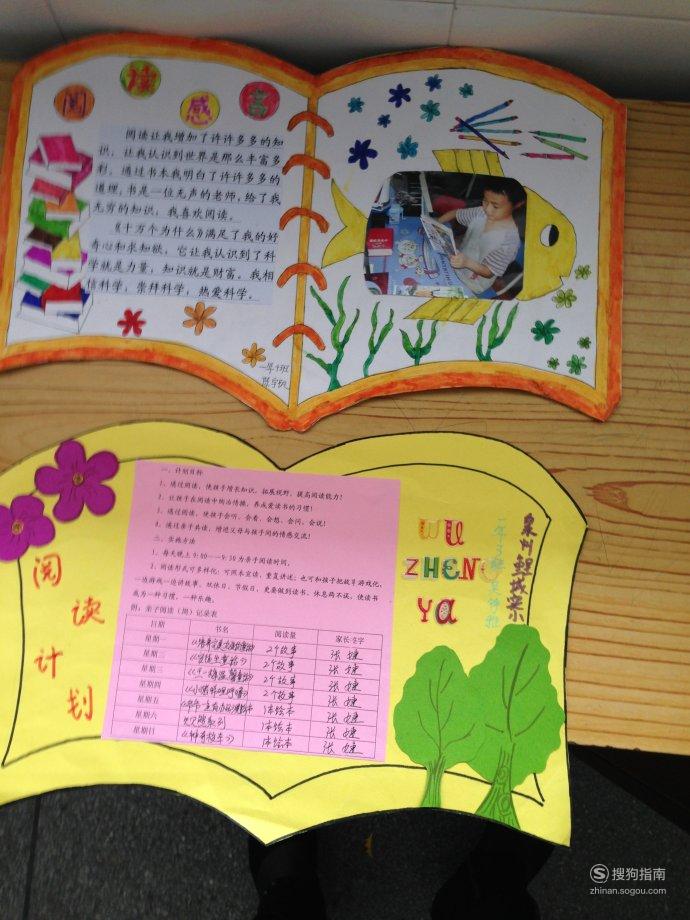 阅读感言
阅读让我增加了许许多多的知
识，让我认识到世界是那么丰富多
彩。通过书本我明白了许许多多的
道理，书是一位无声的老师，给了我
无穷的知识，我喜欢阅读。
《十万个为什么》满足了我的好
奇心和求知欲。它让我认识到了科
学就是力量，知识就是财富。我相
信科学，崇拜科学，热爱科学。
阅读计划
一、计划目标
1、通过阅读，使孩子增长知识，拓展视野，提高阅读能力！
2、让孩子在阅读中陶冶情操，养成爱读书的习惯！
3、通过阅读，使孩子会听、会看、会想、会问、会说！
4、通过亲子共读，增进父母与孩子间的情感交流！
二、实施方法
1、每天晚上9:00——9:30为亲子阅读时间。
2、阅读形式可多样化：可照本宣读、重复讲述；也可和孩子把故事游戏化，
一边游戏一边讲故事。双休日、节假日，更要做到读书、休息两不误，使读书
成为一种习惯，一种乐趣。
附：亲子阅读（周）记录表
日期 书名 阅读量 家长签字
星期一 2个故事 张婕
星期二 2个故事 张婕
星期三 2个故事 张婕
星期四 2个故事 张婕
星期五 1本绘本 张婕
星期六 1本绘本 张婕
星期日 《神奇校车》 1本绘本 张婕
WU
ZHENG
YA
泉州鲤城实小
搜狗指南
zhinan.sogou.com